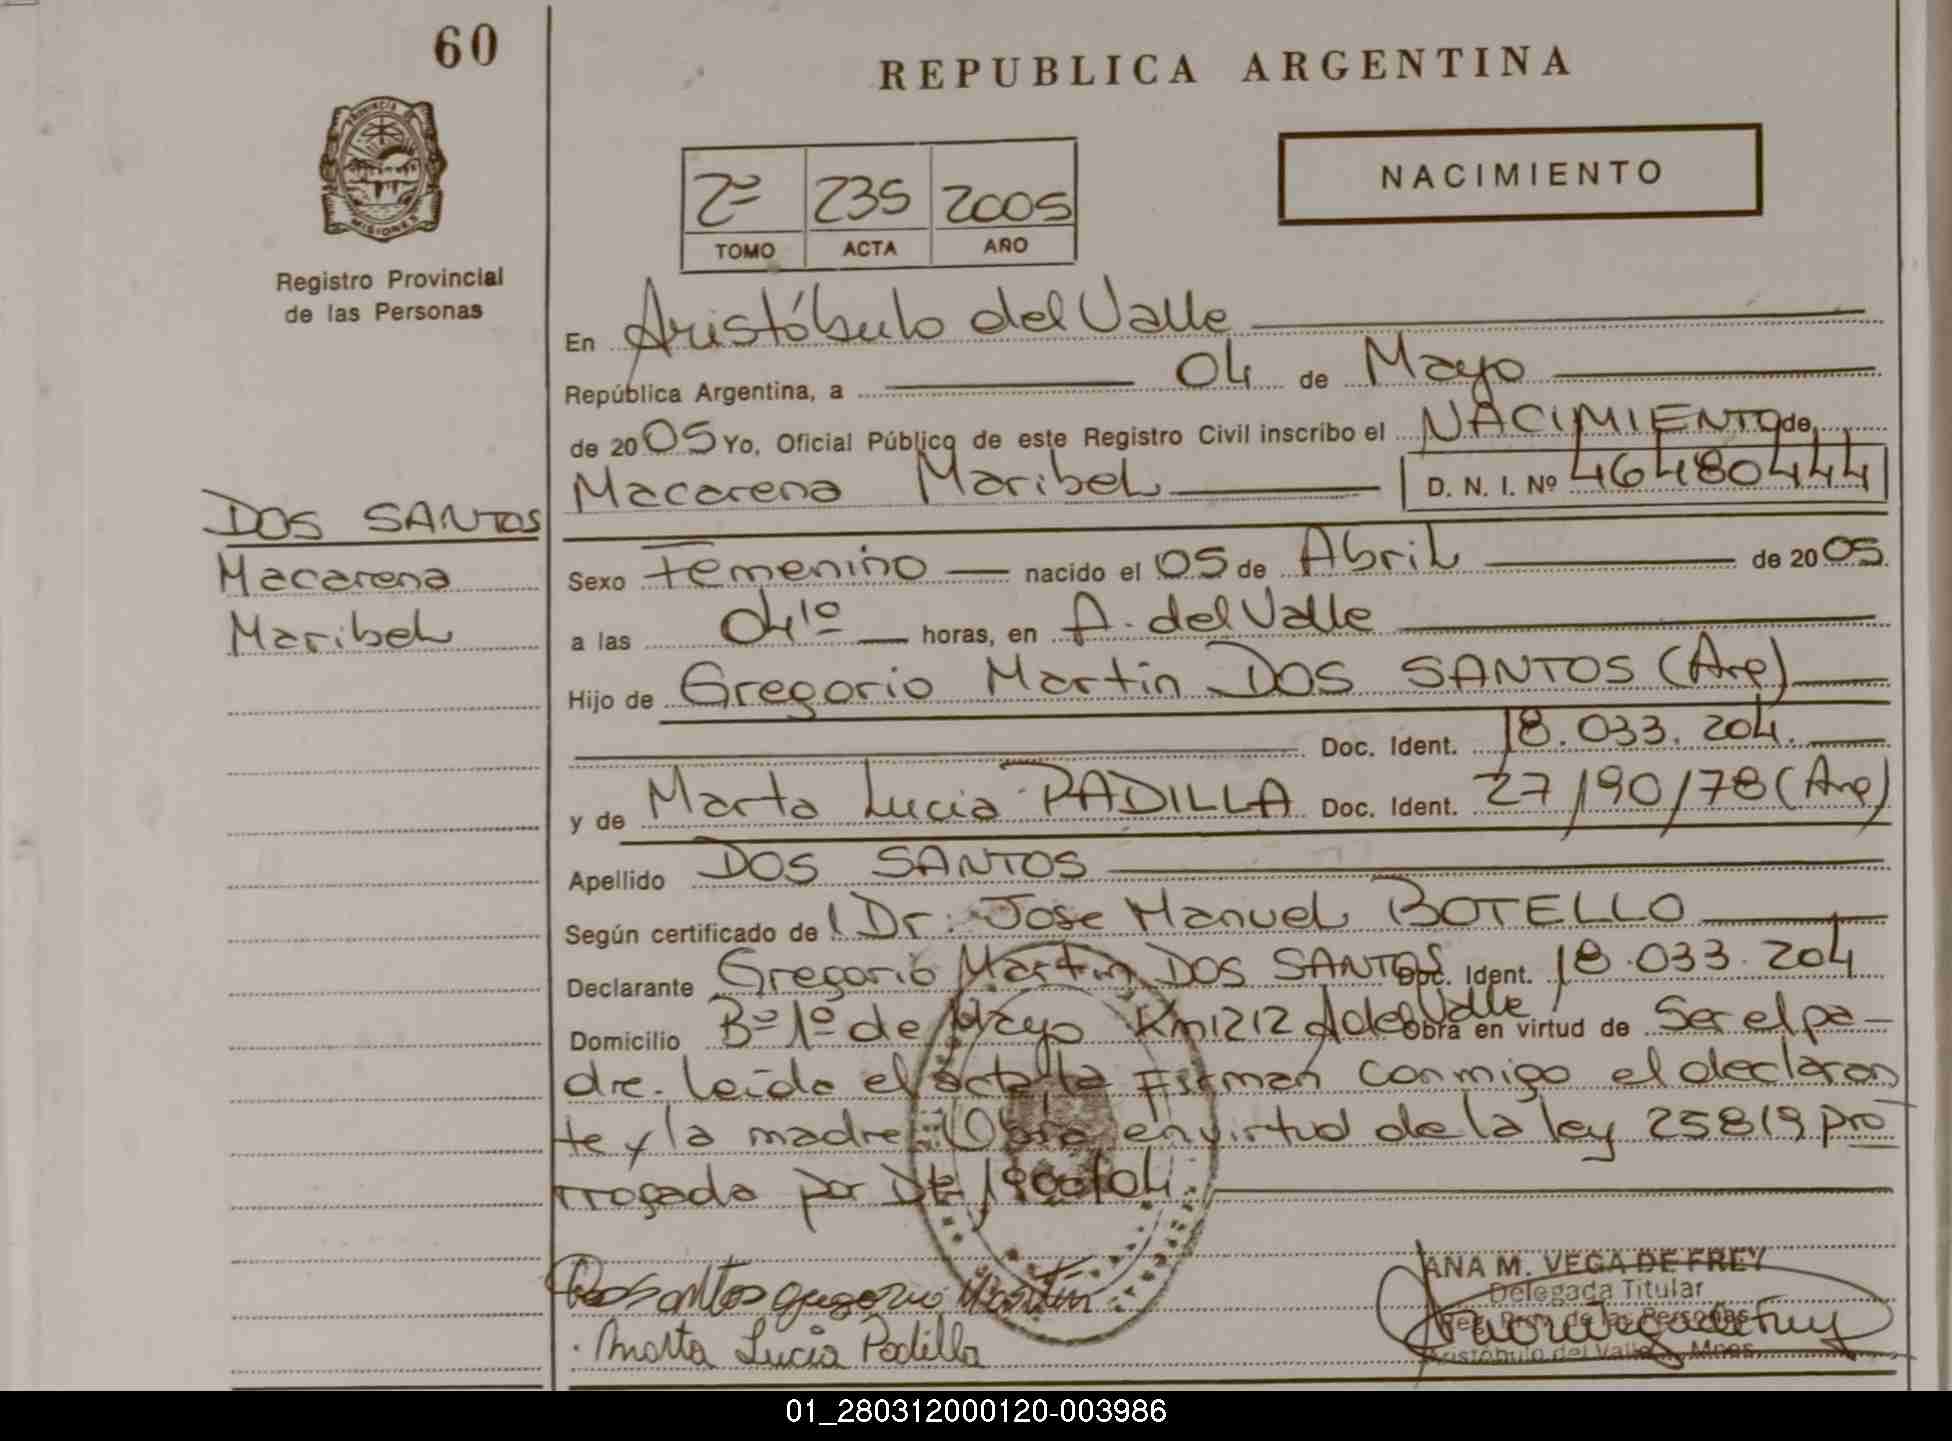 60
REPUBLICA ARGENTINA
PROVINCIA
MISIONES
Registro Provincial
de las Personas
2º 235 2005
TOMO ACTA AÑO
NACIMIENTO
En Aristóbulo del Valle
República Argentina, a 04 de Mayo
de 2005 Yo, Oficial Público de este Registro Civil inscribo el NACIMIENTO de
Macarena Maribel D. N. I. Nº 46480444
DOS SANTOS
Macarena
Maribel
Sexo Femenino nacido el 05 de Abril de 2005
a las 04¹º horas, en A. del Valle
Hijo de Gregorio Martin DOS SANTOS (Arg)
Doc. Ident. 18.033.204.
y de Marta Lucia PADILLA Doc. Ident. 27/90/78 (Arg)
Apellido DOS SANTOS
Según certificado del Dr. Jose Manuel BOTELLO
Declarante Gregorio Martin DOS SANTOS Doc. Ident. 18.033.204
Domicilio Bº 1º de Mayo Km1212 A del Valle Obra en virtud de Ser el pa-
dre. Leída el acta la Firman conmigo el declaran
te y la madre. Obra en virtud de la ley 25819 pro
rrogada por Dt. 1900/04
Dos santos gregorio Martin
Marta Lucia Padilla
ANA M. VEGA DE FREY
Delegada Titular
Reg. Prov. de las Personas
Aristóbulo del Valle - Mnes.
01_280312000120-003986